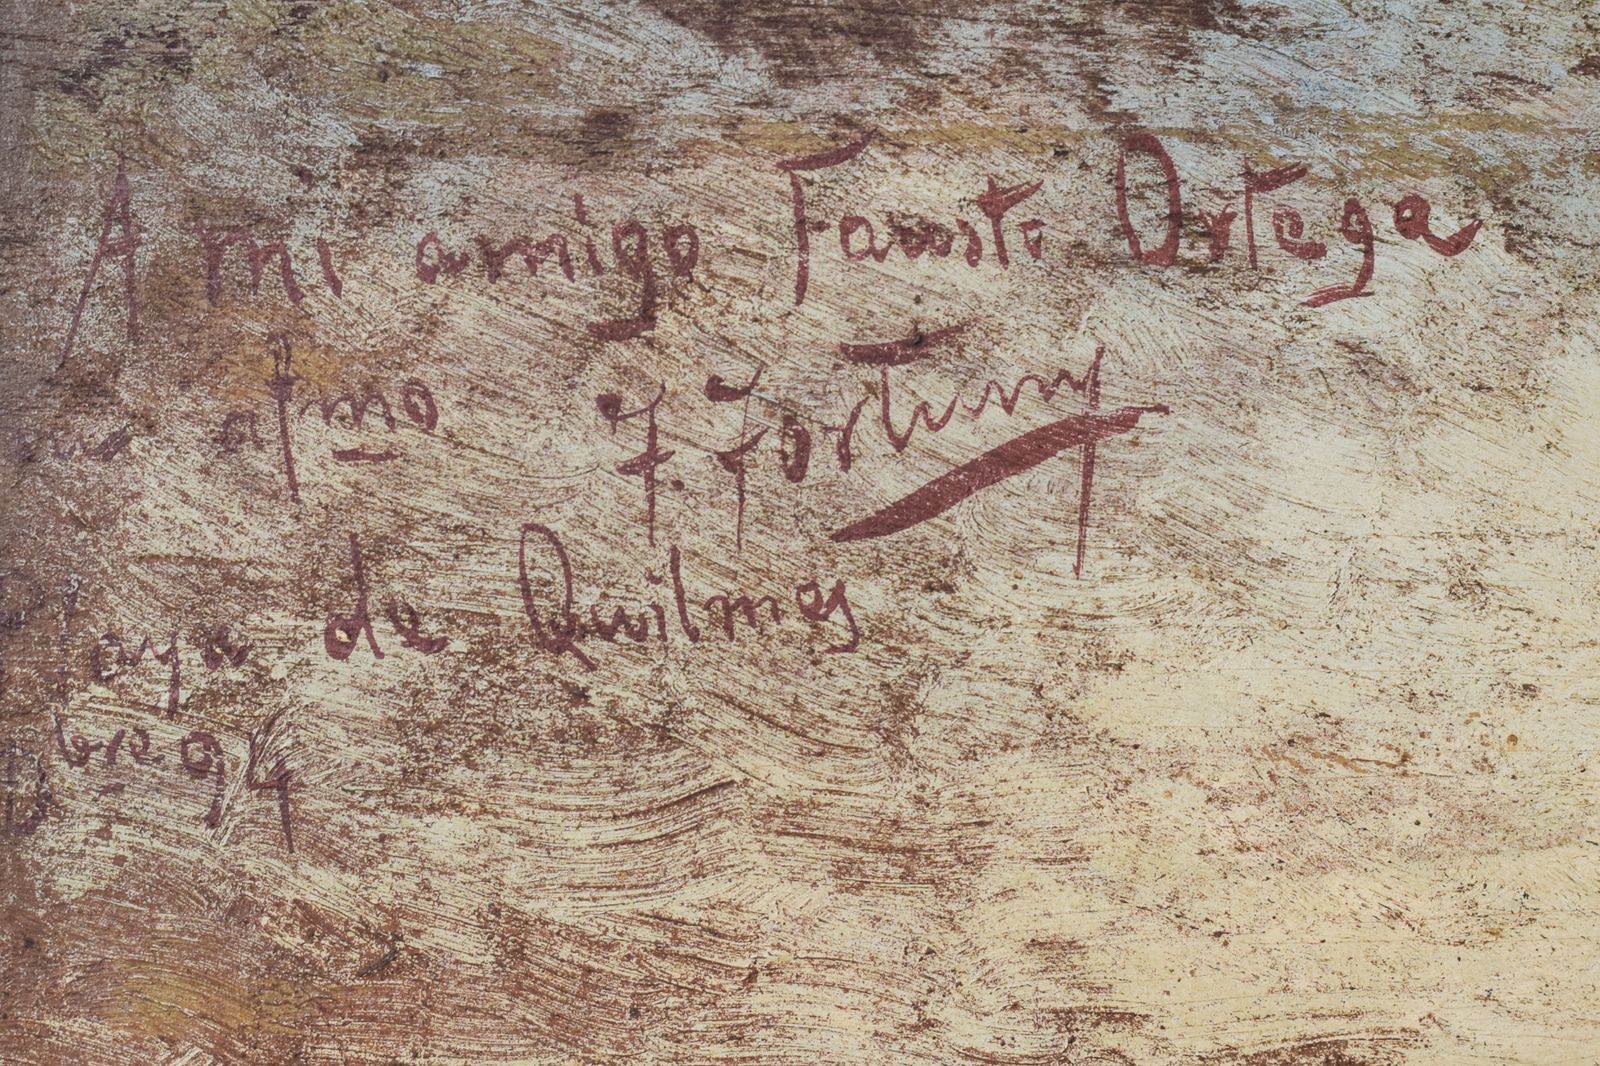 A mi amigo Fausto Ortega
su afmo F. Fortuny
Playa de Quilmes
Dbre 94